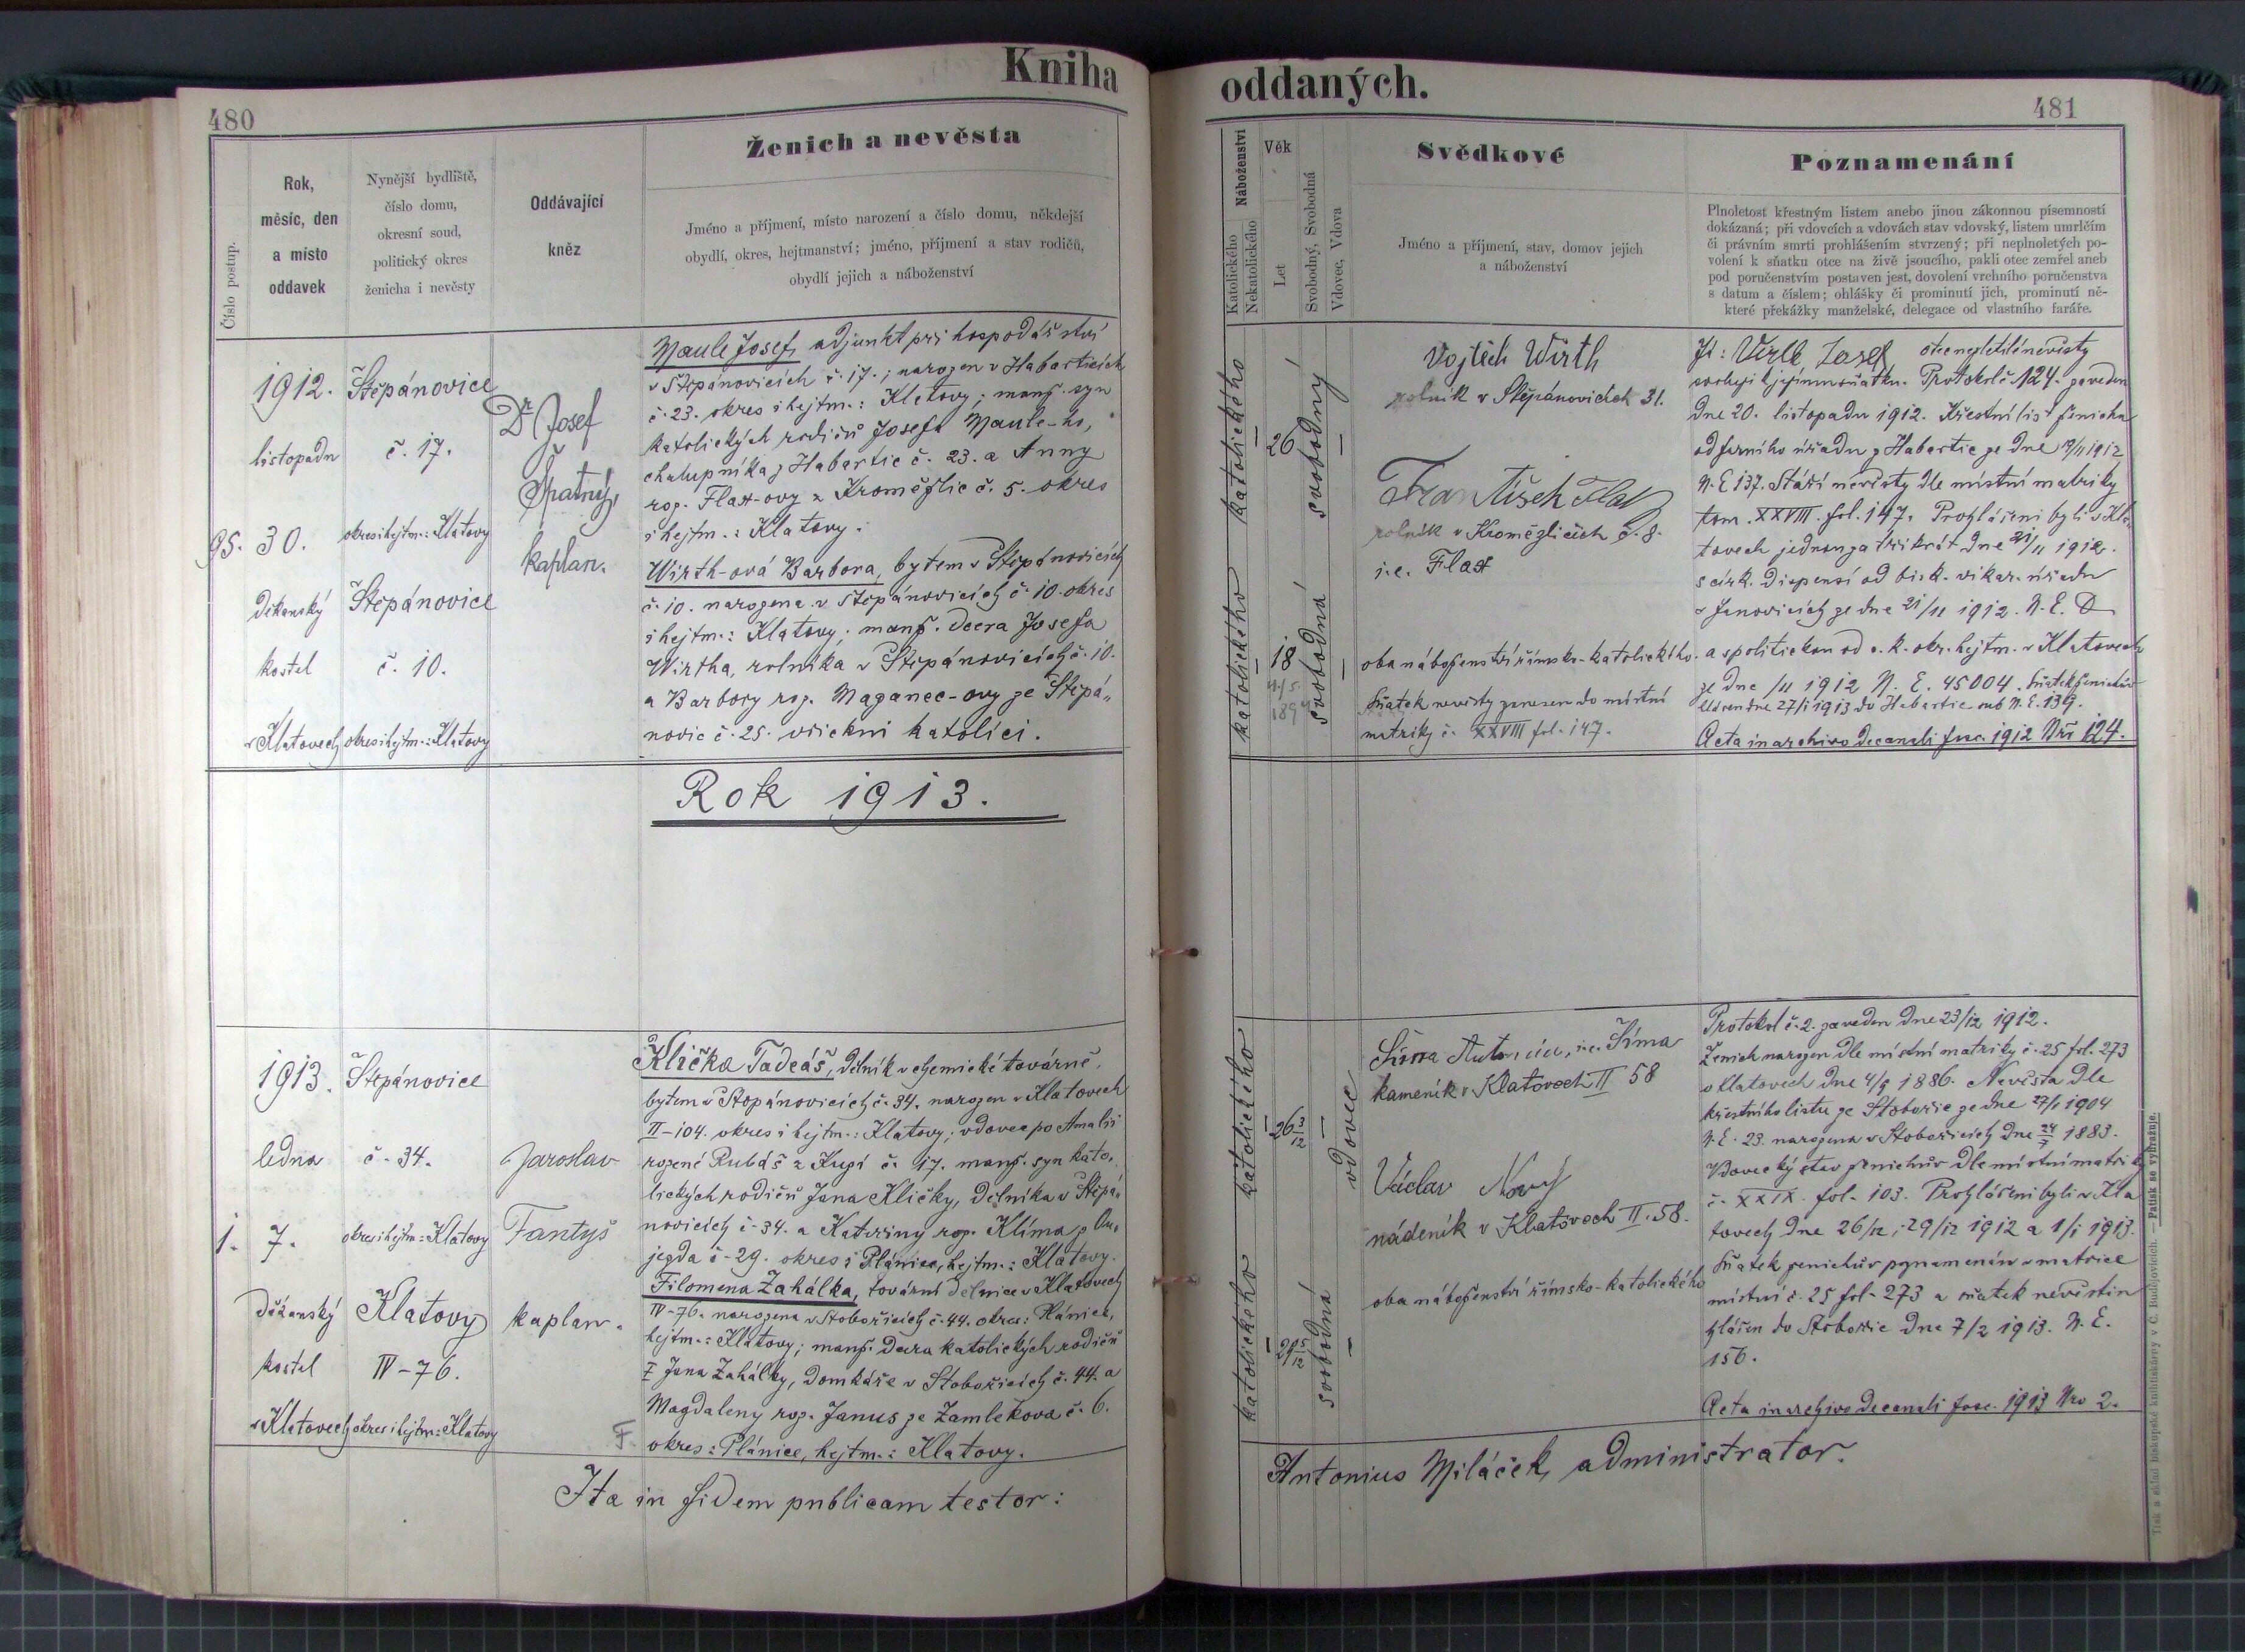 Kniha oddaných.
480
481
Číslo postup.
Rok,
měsíc, den
a místo
oddavek
Nynější bydliště,
číslo domu,
okresní soud,
politický okres
ženicha i nevěsty
Oddávající
kněz
Ženich a nevěsta
Jméno a příjmení, místo narození a číslo domu, někdejší
obydlí, okres, hejtmanství; jméno, příjmení a stav rodičů,
obydlí jejich a náboženství
Náboženství
Katolického
Nekatolického
Věk
Let
Svobodný, Svobodná
Vdovec, Vdova
Svědkové
Jméno a příjmení, stav, domov jejich
a náboženství
Poznamenání
Plnoletost křestným listem anebo jinou zákonnou písemností
dokázaná; při vdovcích a vdovách stav vdovský, listem úmrlčím
či právním smrti prohlášením stvrzený; při neplnoletých po-
volení k sňatku otce na živě jsoucího, pakli otec zemřel aneb
pod poručenstvím postaven jest, dovolení vrchního poručenstva
s datum a číslem; ohlášky či prominutí jich, prominutí ně-
které překážky manželské, delegace od vlastního faráře.
95.
1912.
listopadu
30.
děkanský
kostel
v Klatovech
Štěpánovice
č. 17.
okres i hejtm.: Klatovy
Štěpánovice
č. 10.
okres i hejtm.: Klatovy
Dr Josef
Špatný,
kaplan.
Maule Josef, adjunkt při hospodářství
v Štěpánovicích č. 17.; narozen v Habarticích
č. 23. okres i hejtm.: Klatovy; manž. syn
katolických rodičů Josefa Maule-ho,
chalupníka z Habartic č. 23. a Anny
roz. Flax-ovy z Kroměždic č. 5. okres
i hejtm.: Klatovy.
Wirth-ová Barbora, bytem v Štěpánovicích
č. 10. narozena v Štěpánovicích č. 10. okres
i hejtm.: Klatovy; manž. dcera Josefa
Wirtha, rolníka v Štěpánovicích č. 10.
a Barbory roz. Maganec-ovy ze Štěpá-
novic č. 25. všickni katolíci.
katolického
26
svobodný
katolického
18
svobodná
Vojtěch Wirth
rolník v Štěpánovicích 31.
František Flax
rolník v Kroměždicích č. 8.
i.e. Flax
oba náboženství římsko-katolického.
Sňatek nevěsty zanesen do místní
matriky č. XXVIII fol. 147.
Já: Virth Josef otec nezletilé nevěsty
svoluji k jejímu sňatku. Protokol č. 124. zaveden
dne 20. listopadu 1912. Křestní list ženicha
od farního úřadu z Habartic ze dne 19/11 1912
N. E 137. Stáří nevěsty dle místní matriky
tom. XXVIII. fol. 147. Prohlášeni byli v Kla-
tovech jednou za třikrát dne 21/11 1912.
s círk. dispensí od bisk. vikar. úřadu
v Janovicích ze dne 21/11 1912. N. E. D
a politickou od c. k. okr. hejtm. v Klatovech
ze dne /11 1912 N. E. 45004. Sňatek ženichův
hlášen dne 27/1 1913 do Habartic sub N. E. 139.
Acta in archivo decanali fasc. 1912 Nr. 124.
Rok 1913.
1.
1913.
ledna
7.
děkanský
kostel
v Klatovech
Štěpánovice
č. 34.
okres i hejtm.: Klatovy
Klatovy
IV-76.
okres i hejtm.: Klatovy
Jaroslav
Fantyš
kaplan.
Klička Tadeáš, dělník v chemické továrně,
bytem v Štěpánovicích č. 34. narozen v Klatovech
II-104. okres i hejtm.: Klatovy; vdovec po Amalii
rozené Rubáš z Kupí č. 17. manž. syn kato-
lických rodičů Jana Kličky, dělníka v Štěpá-
novicích č. 34. a Kateřiny roz. Klíma z Ou-
jezda č. 29. okres: Plánice, hejtm.: Klatovy.
Filomena Zahálka, tovární dělnice v Klatovech
IV-76. narozena v Stobořicích č. 44. okres: Plánice,
hejtm.: Klatovy; manž. dcera katolických rodičů
† Jana Zahálky, domkáře v Stobořicích č. 44. a
Magdaleny roz. Janus ze Zamlekova č. 6.
okres: Plánice, hejtm.: Klatovy.
F.
katolického
26 3/12
vdovec
katolického
29 5/12
svobodná
Síma Antonín, i.e. Síma
kameník v Klatovech II 58
Václav Nový
nádeník v Klatovech II. 58.
oba náboženství římsko-katolického
Protokol č. 2. zaveden dne 23/12 1912.
Ženich narozen dle místní matriky č. 25 fol. 273
v Klatovech dne 4/9 1886. Nevěsta dle
křestního listu ze Stobořic ze dne 27/1 1904
N. E. 23. narozena v Stobořicích dne 24/7 1883.
Vdovecký stav ženichův dle místní matriky
č. XXIX. fol. 103. Prohlášeni byli v Kla
tovech dne 26/12, 29/12 1912 a 1/1 1913.
Sňatek ženichův poznamenán v matrice
místní č. 25 fol. 273 a sňatek nevěstin
hlášen do Stobořic dne 7/2 1913. N. E.
156.
Acta in archivo decanali fasc. 1913 Nro 2.
Ita in fidem publicam testor:
Antonius Miláček, administrator.
Tisk a sklad biskupské knihtiskárny v Č. Budějovicích. — Patisk se vyhražuje.